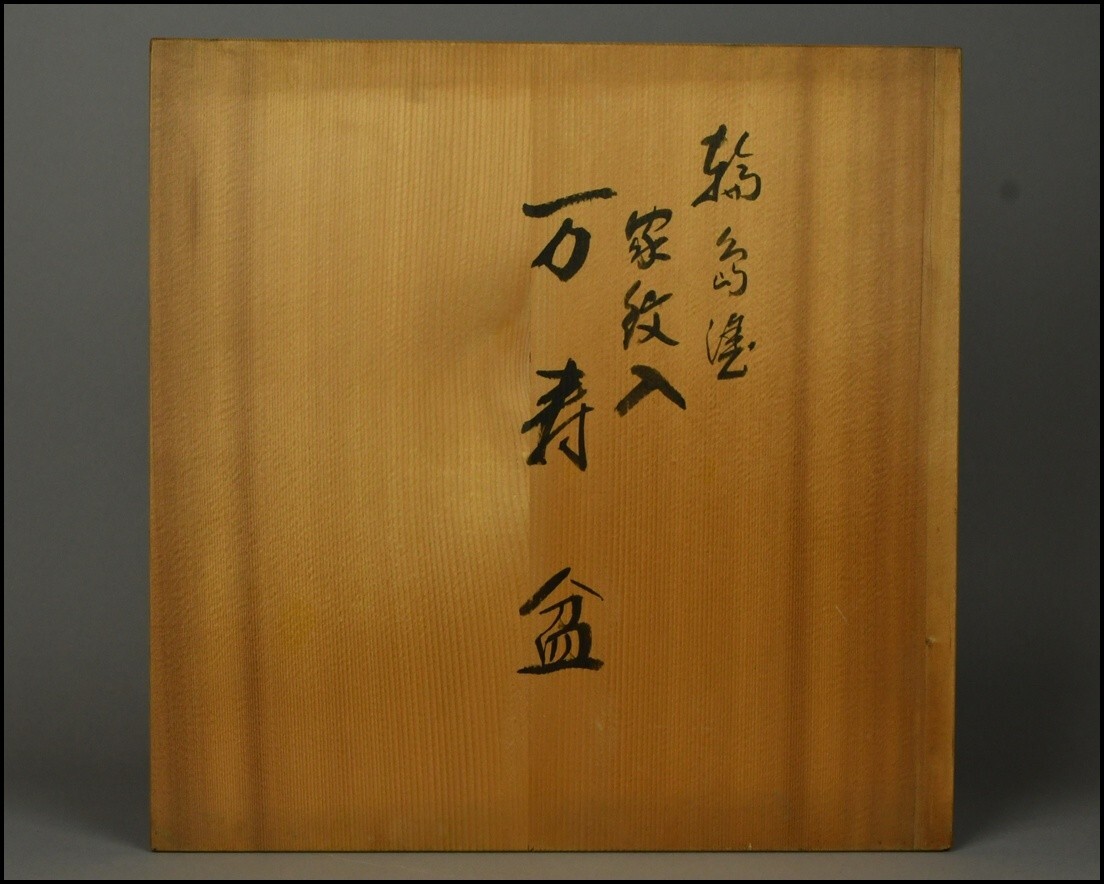 輪島塗
家紋入
万寿盆